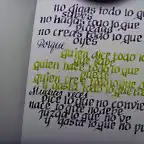 no digas todo lo que
sabes
no hagas todo lo que
puedas
no creas todo lo que
oyes
Porque
quien dice todo lo
quien hace todo lo que
quien cree todo lo que
Muchas veces
Dice lo que no convie
hace lo que no debe
Juzga lo que no ve
y gasta lo que no pu